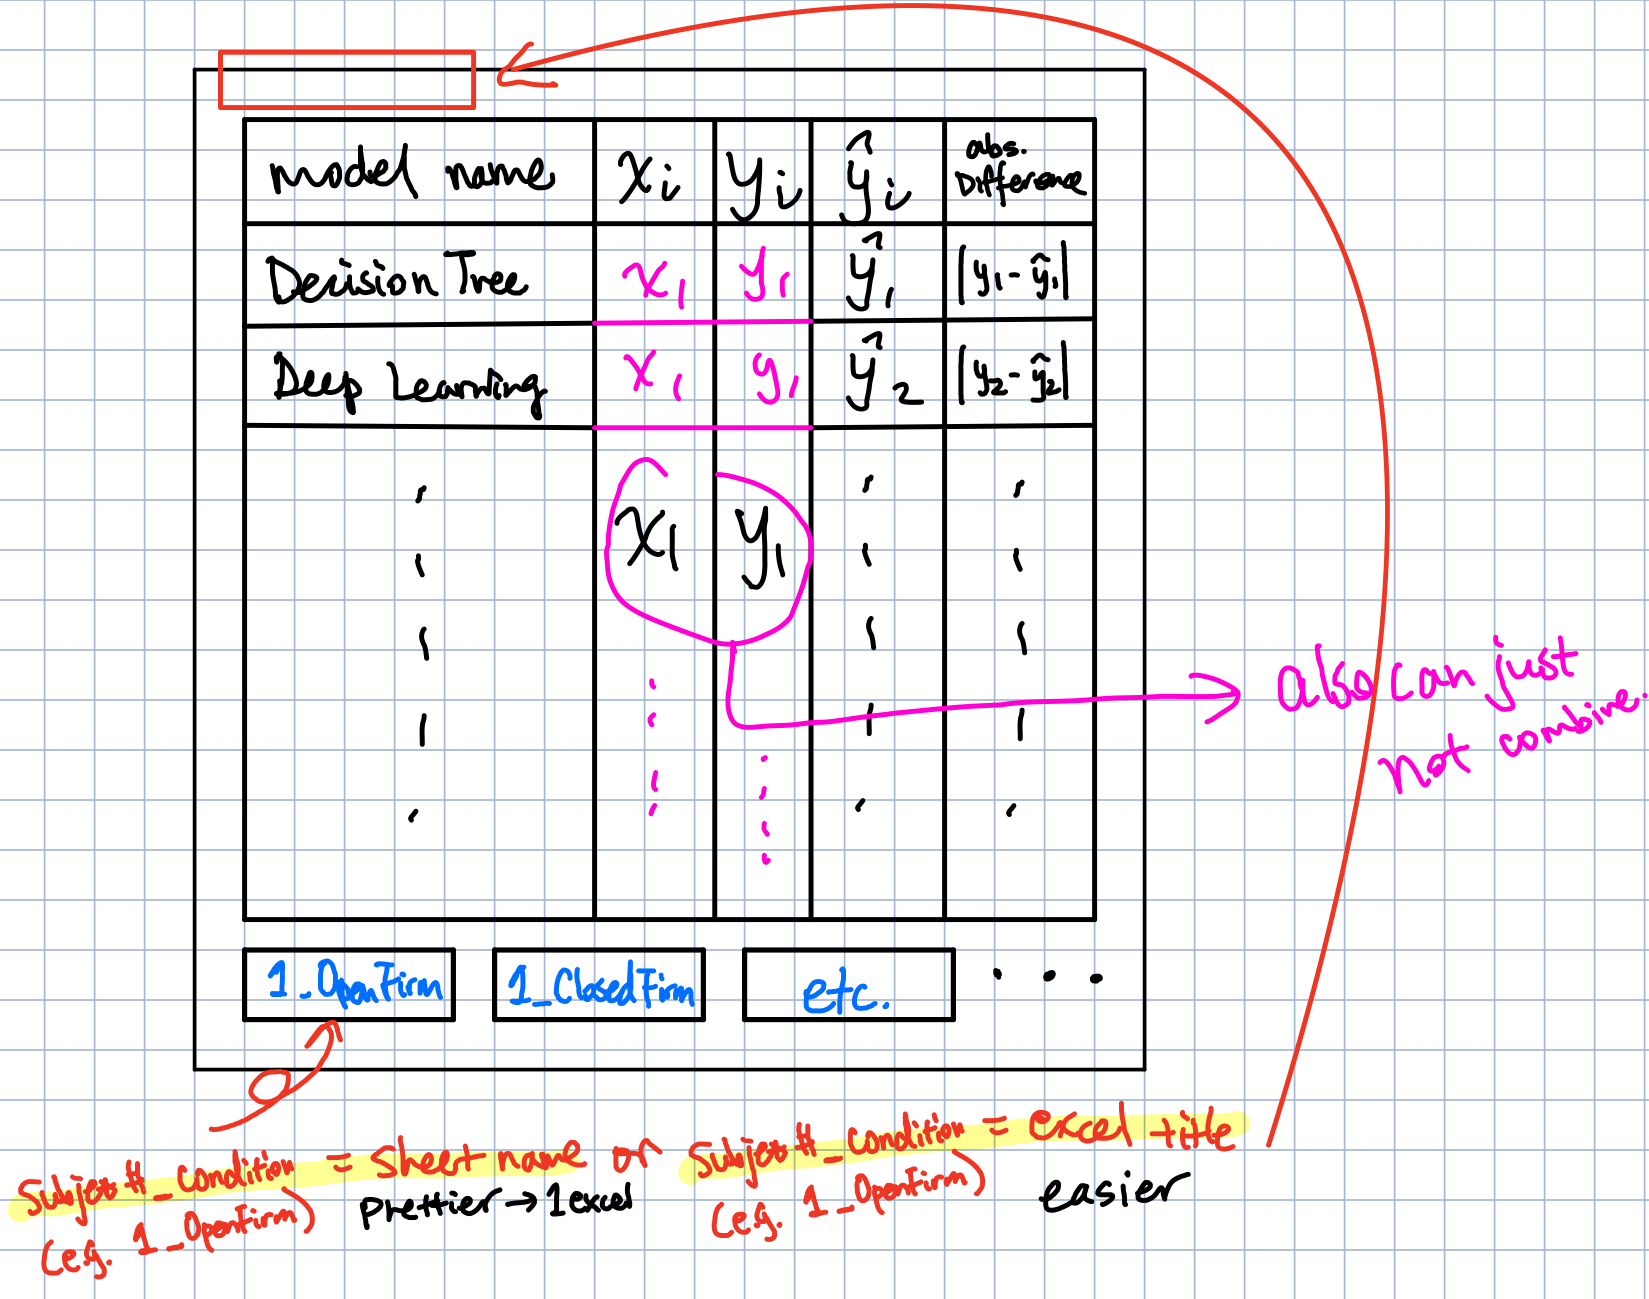 model name xᵢ yᵢ ŷᵢ abs. Difference
Decision Tree x₁ y₁ ŷ₁ |y₁-ŷ₁|
Deep Learning x₁ y₁ ŷ₂ |y₂-ŷ₂|
x₁ y₁
also can just
not combine.
1_OpenFirm 1_ClosedFirm etc. ...
Subjet#_condition = Sheet name or Subjet#_condition = excel title
(e.g. 1_OpenFirm) Prettier → 1 excel (e.g. 1_OpenFirm) easier